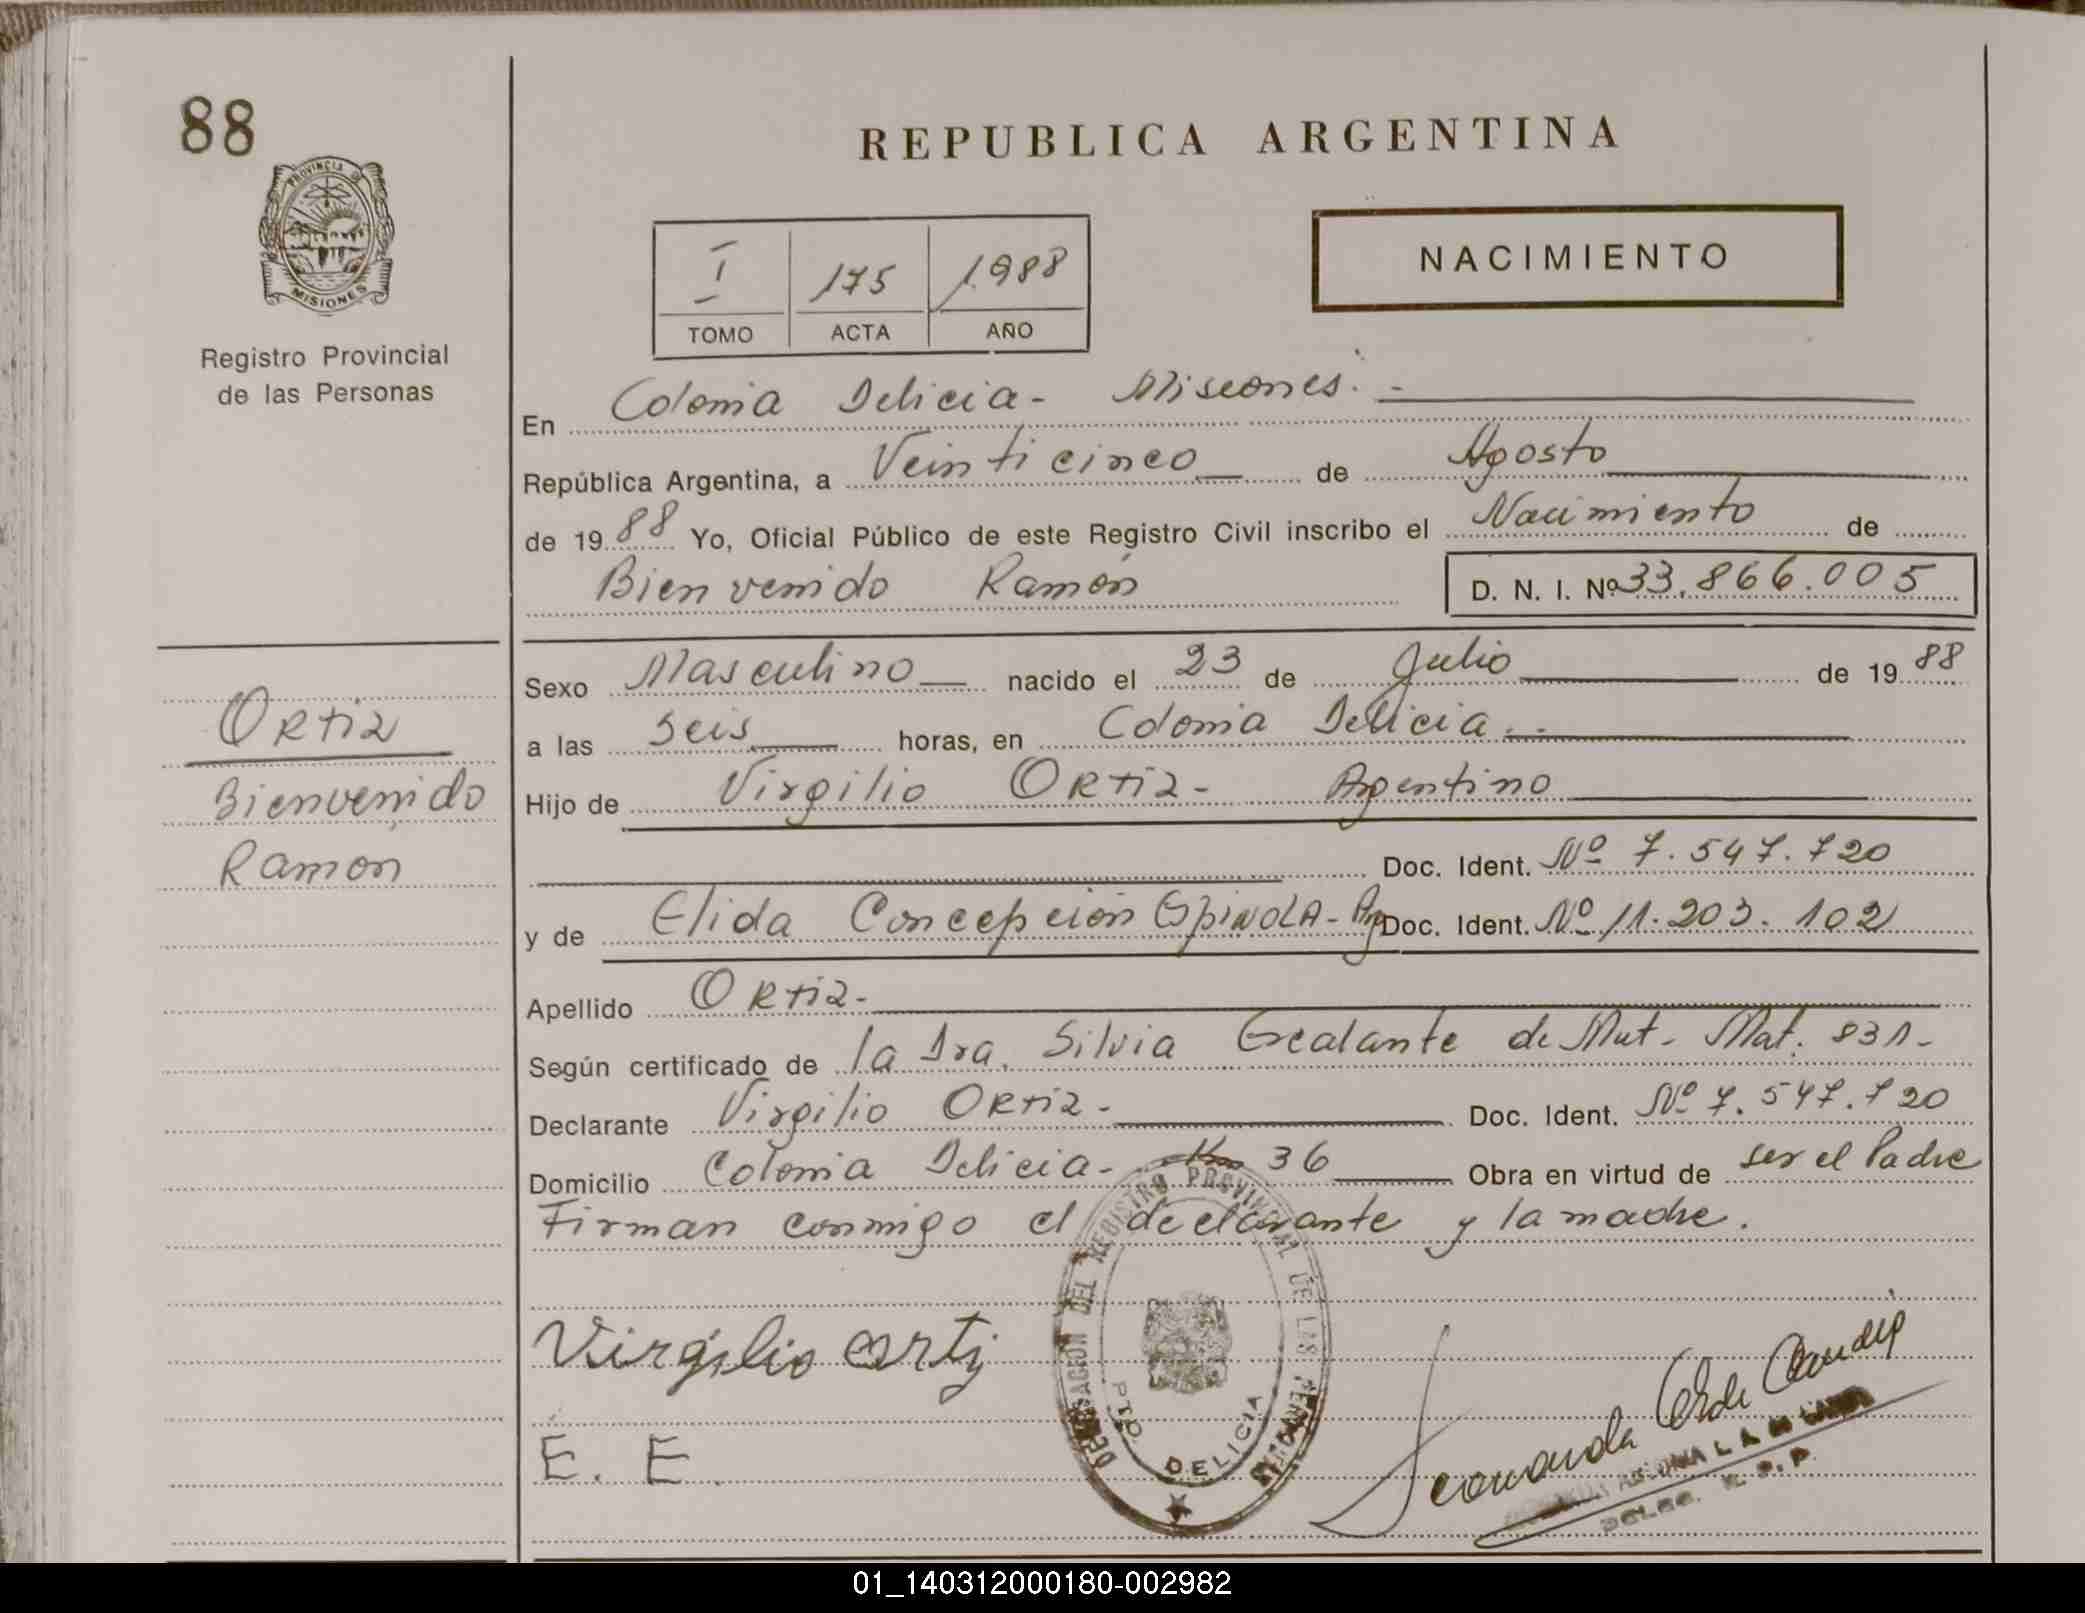 88
PROVINCIA DE
MISIONES
Registro Provincial
de las Personas
REPUBLICA ARGENTINA
NACIMIENTO
I 175 1.988
TOMO ACTA AÑO
En Colonia Delicia - Misiones. -
República Argentina, a Veinticinco de Agosto
de 19 88 Yo, Oficial Público de este Registro Civil inscribo el Nacimiento de
Bienvenido Ramón D. N. I. Nº 33.866.005
Sexo Masculino nacido el 23 de Julio de 19 88
a las Seis horas, en Colonia Delicia. -
Hijo de Virgilio Ortiz - Argentino
Doc. Ident. Nº 7.547.720
y de Elida Concepción Espinola - Arg Doc. Ident. Nº 11.203.102
Apellido Ortiz -
Según certificado de la Dra. Silvia de Mut - Mat. 831 -
Declarante Virgilio Ortiz - Doc. Ident. Nº 7.547.720
Domicilio Colonia Delicia - Km 36 Obra en virtud de ser el Padre
Firman conmigo el declarante y la madre.
Ortiz
Bienvenido
Ramón
Virgilio ortiz
E. E.
DELEGACION DEL REGISTRO PROVINCIAL DE LAS PERSONAS
PTO. DELICIA
DELEG. R. P. P.
01_140312000180-002982